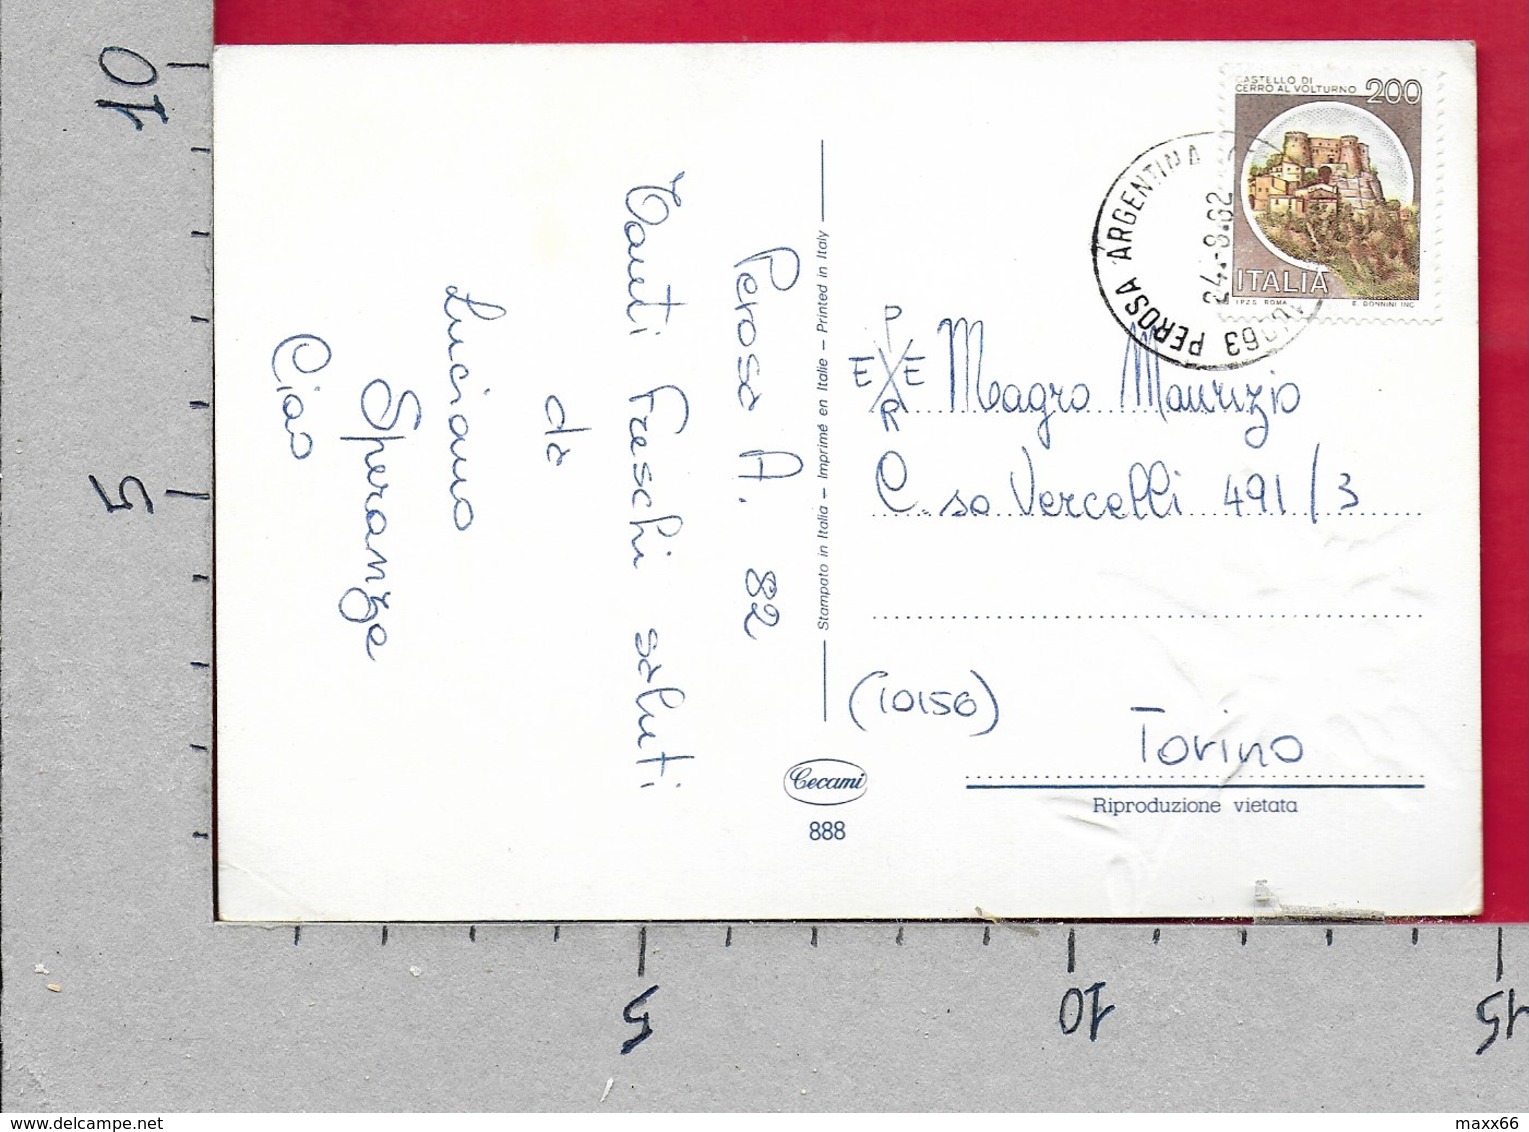 10
5
5
10
15
Perosa A. 82
Tanti Freschi saluti
da
Luciano
Speranza
Ciao
Stampato in Italia – Imprimé en Italie – Printed in Italy
Cecami
888
CASTELLO DI
CERRO AL VOLTURNO 200
ITALIA
I.P.Z.S. ROMA E. DONNINI INC.
PEROSA ARGENTINA
24.-8.82
P
E E Magro Maurizio
R
C.so Vercelli 491/3
(10156)
Torino
Riproduzione vietata
delcampe.net
maxx66